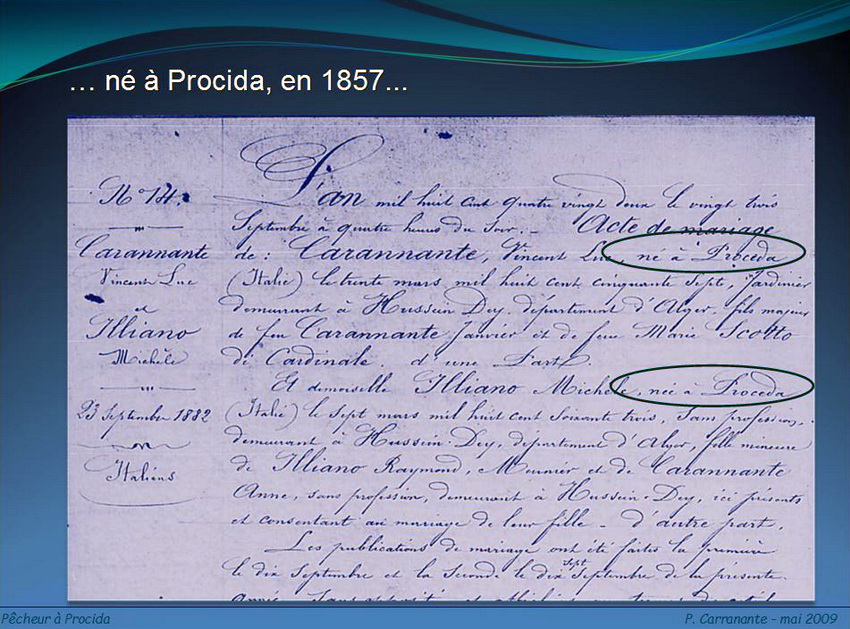 ... né à Procida, en 1857...
N° 14.
Carannante
Vincent Luc
et
Illiano
Michèle
23 Septembre 1882
Italiens
L'an mil huit cent quatre vingt deux le vingt trois
Septembre à quatre heures du Soir. - Acte de mariage
de : Carannante, Vincent Luc, né à Proceda
(Italie) le trente mars mil huit cent cinquante Sept, Jardinier
demeurant à Hussein-Dey, département d'Alger, fils majeur
de feu Carannante Janvier et de feue Marie Scotto
di Cardinale. d'une Part.
Et demoiselle Illiano Michèle, née à Proceda
(Italie) le Sept mars mil huit cent Soixante trois, Sans profession,
demeurant à Hussein-Dey, département d'Alger, fille mineure
de Illiano Raymond, Meunier et de Carannante
Anne, sans profession, demeurant à Hussein-Dey, ici présents
et consentant au mariage de leur fille - d'autre part.
Les publications de mariage ont été faites la première
le dix Septembre et la Seconde le dix Sept Septembre de la présente
Année, Sans opposition et
Pêcheur à Procida
P. Carranante - mai 2009